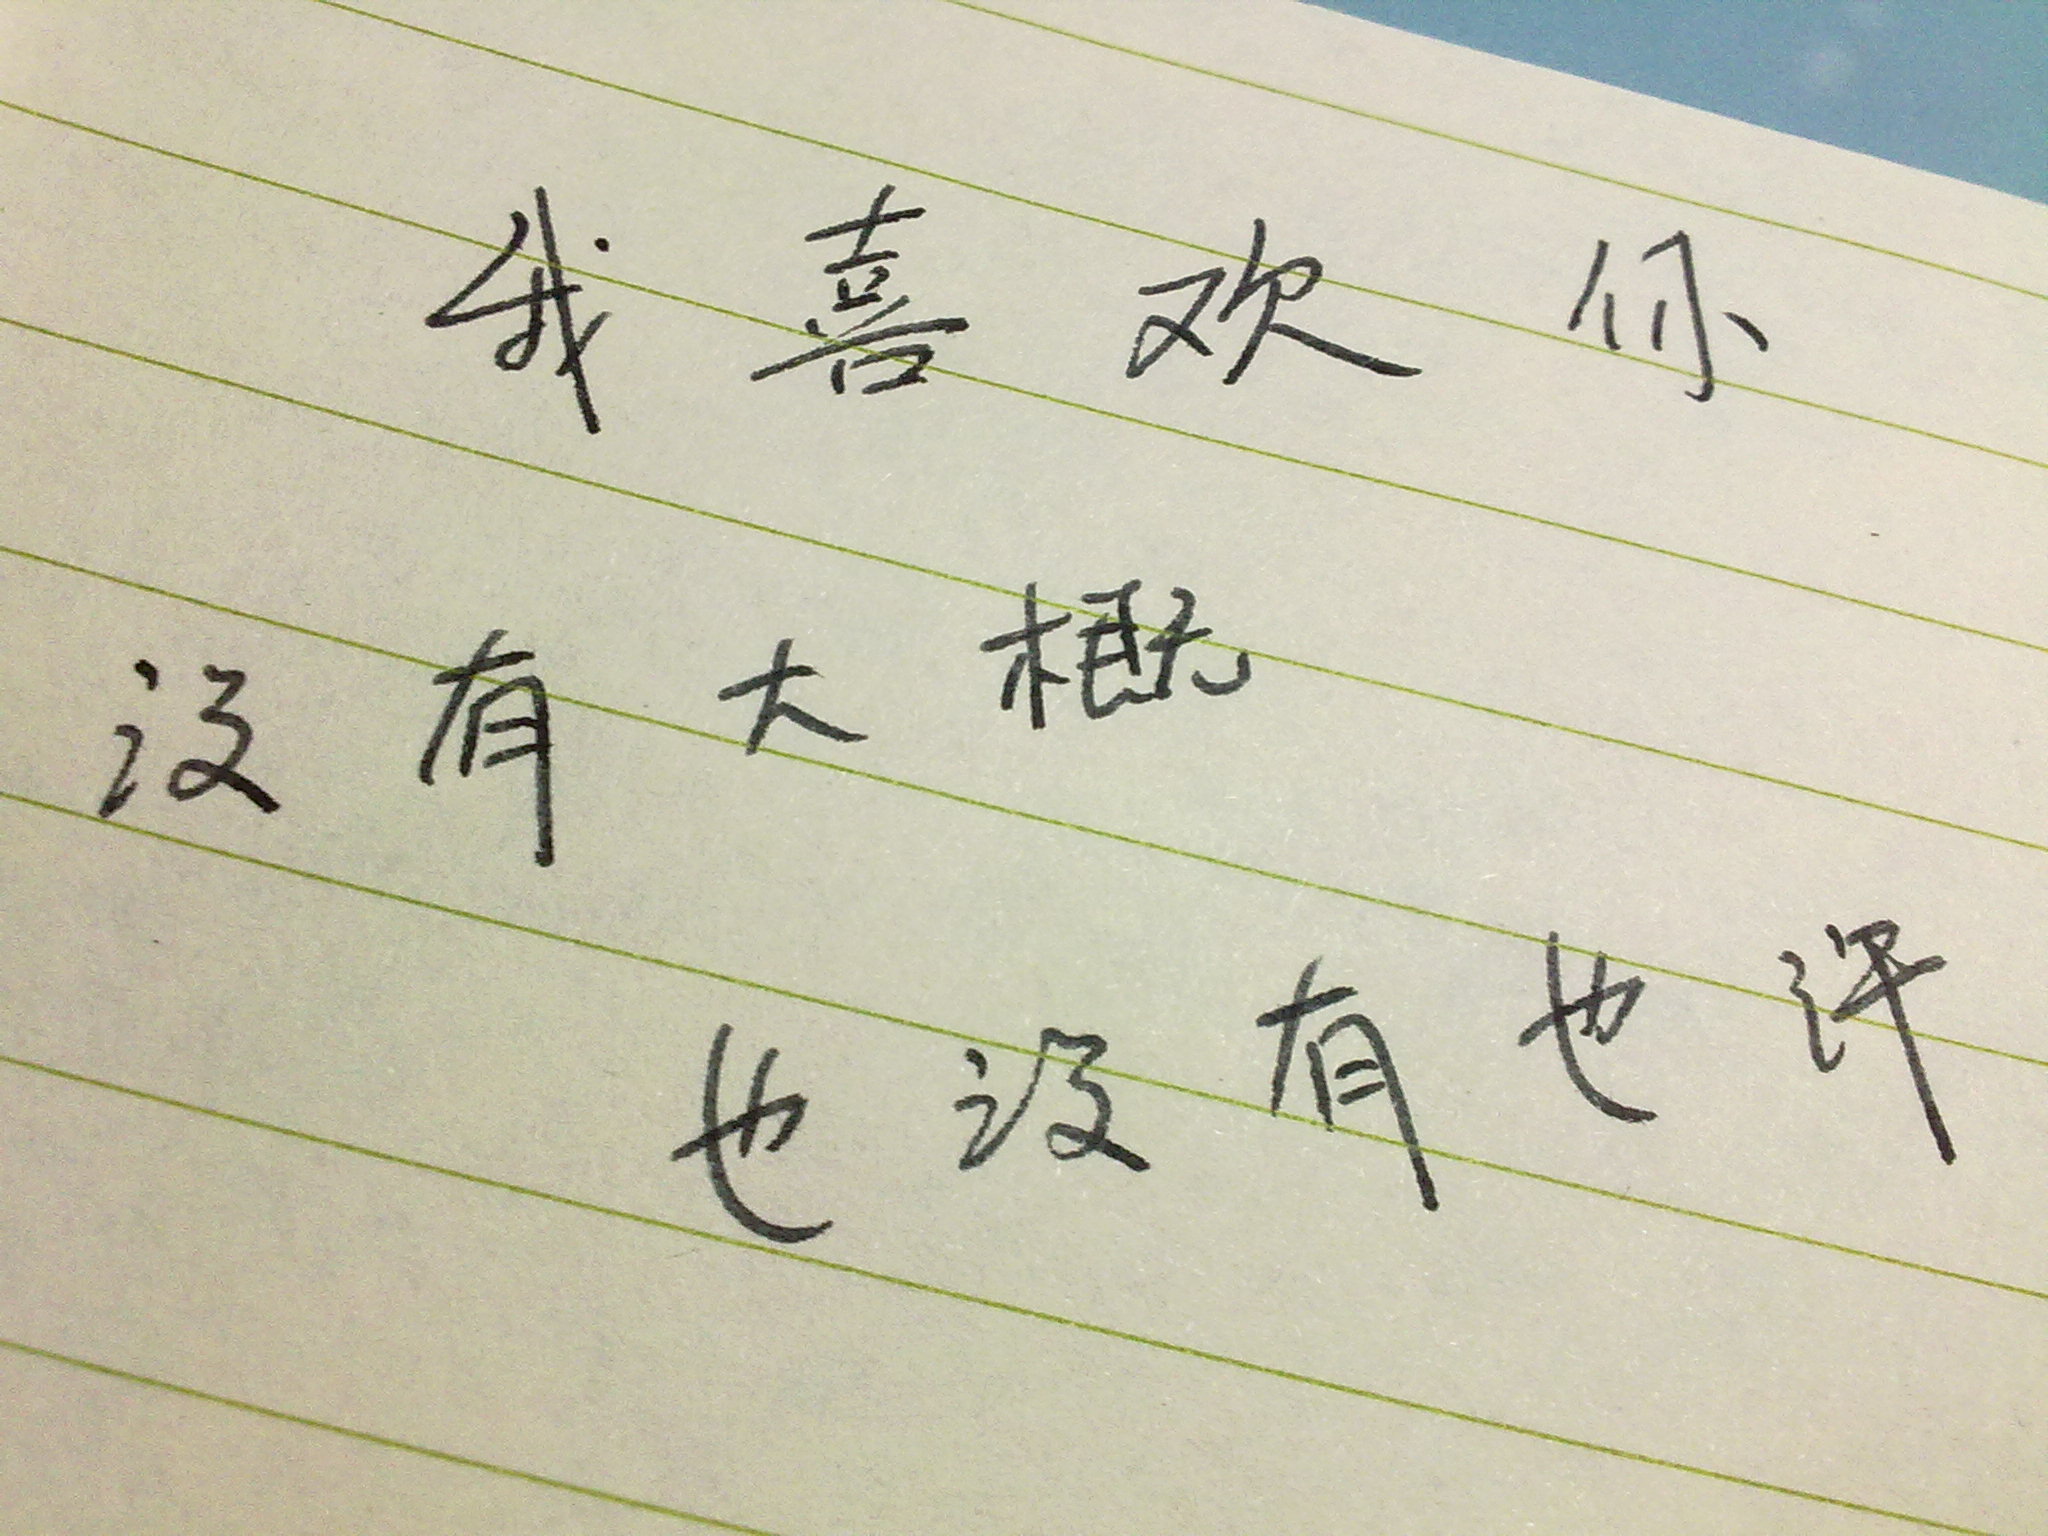 我喜欢你
没有大概
也没有也许